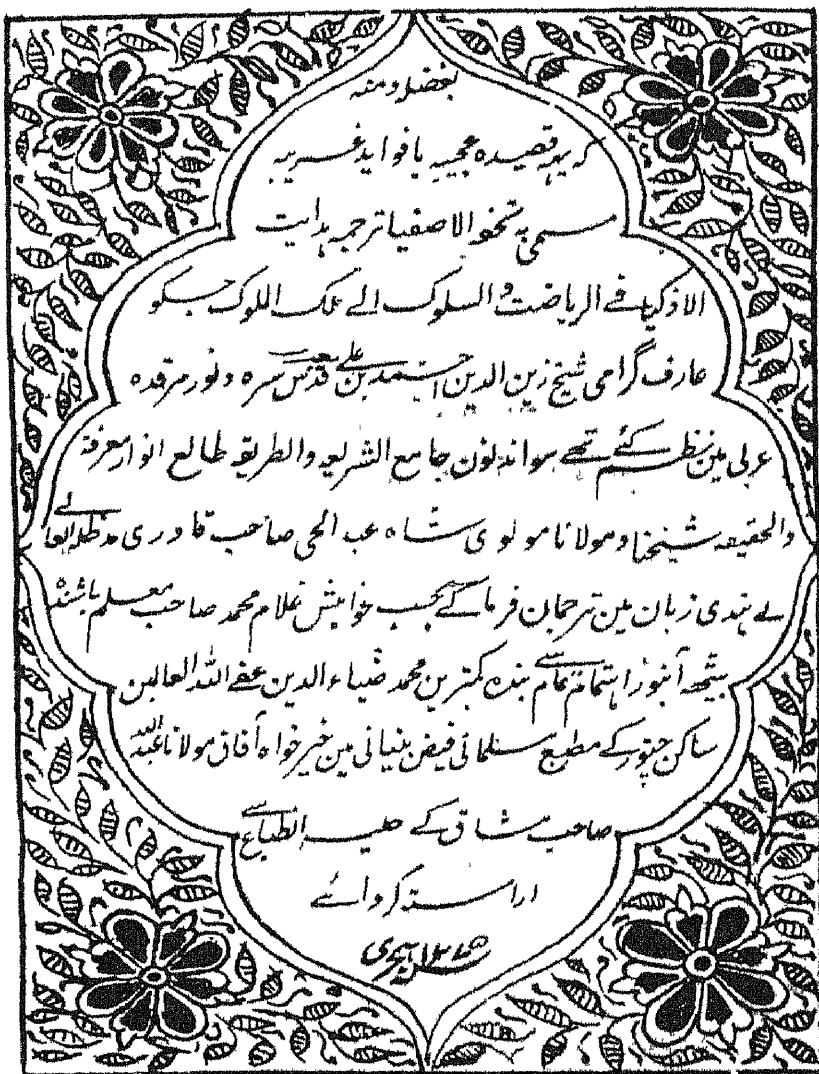 بفضل و منہ
کہ یہہ قصیدہ عجیبہ با فواید غریبہ
مسمی بہ تحفۃ الاصفیا ترجمہ ہدایت
الاذکیا فے الریاضت و السلوک الے ملک الملوک جسکو
عارف گرامی شیخ زین الدین احمد بن علی قدس سرہ و نور مرقدہ
عربی مین نظم کئے تھے سو اندنون جامع الشریعہ والطریقہ طالع انوار معرفۃ
والحقیقہ شیخنا و مولانا مولوی شاہ عبد الحی صاحب قادری مدظلہ العالے
نے ہندی زبان مین ترجمان فرماکے بحسب خواہش غلام محمد صاحب معلم باشندہ
اہتمام تمام سے بندہ کمترین محمد ضیاء الدین عفے اللہ
ساکن چتور کے مطبع مین خیر خواہ آفاق مولانا عبد اللہ
صاحب مشاق کے حلیہ انطباع سے
اراستہ کروائے
ہجری